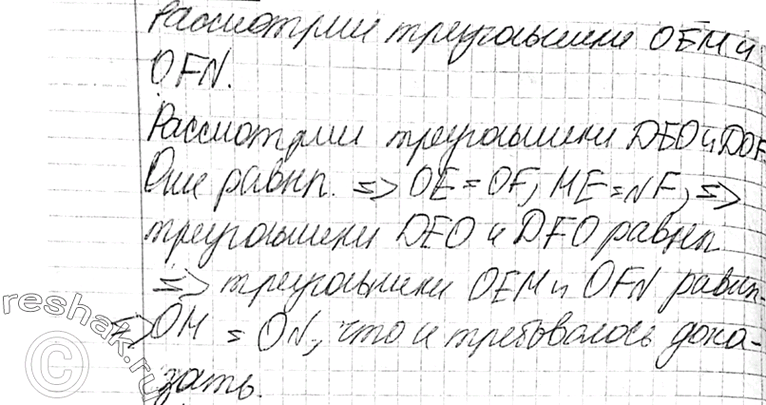 Рассмотрим треугольники OEM и
OFN.
Рассмотрим треугольники DEO и DOF
Они равны. => OE = OF, ME = NF, =>
треугольники DEO и DFO равны
=> треугольники OEM и OFN равны-
=> OM = ON, что и требовалось дока-
зать.
©reshak.ru